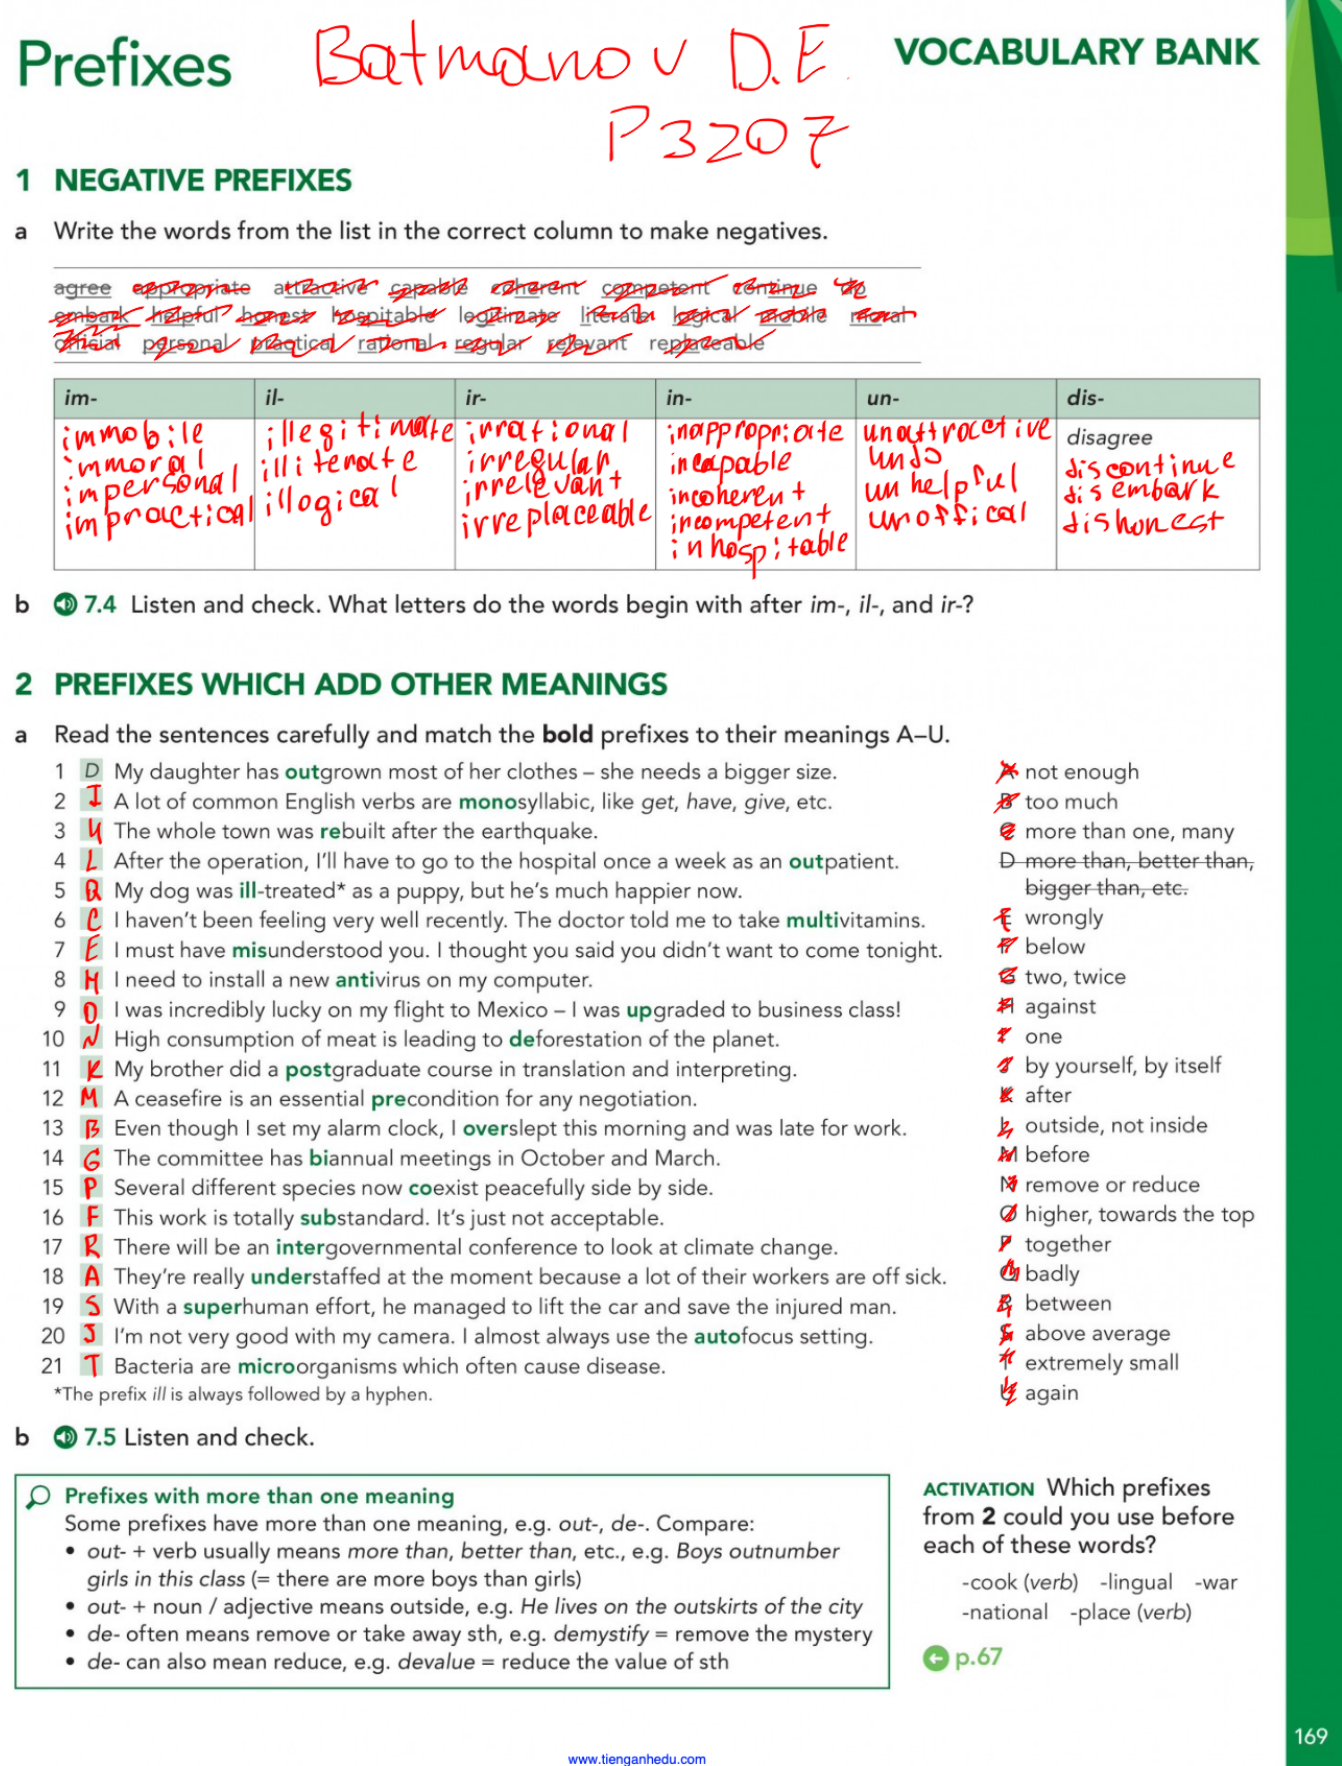 Prefixes
Batmanov D.E.
VOCABULARY BANK
P3207
1 NEGATIVE PREFIXES
a Write the words from the list in the correct column to make negatives.
agree appropriate attractive capable coherent competent continue do
embark helpful honest hospitable legitimate literate logical mobile moral
official personal practical rational regular relevant replaceable
im- il- ir- in- un- dis-
immobile illegitimate irrational inappropriate unattractive disagree
immoral illiterate irregular incapable undo discontinue
impersonal illogical irrelevant incoherent unhelpful disembark
impractical irreplaceable incompetent unoffical dishonest
inhospitable
b 7.4 Listen and check. What letters do the words begin with after im-, il-, and ir-?
2 PREFIXES WHICH ADD OTHER MEANINGS
a Read the sentences carefully and match the bold prefixes to their meanings A–U.
1 D My daughter has outgrown most of her clothes – she needs a bigger size.
2 I A lot of common English verbs are monosyllabic, like get, have, give, etc.
3 U The whole town was rebuilt after the earthquake.
4 L After the operation, I'll have to go to the hospital once a week as an outpatient.
5 Q My dog was ill-treated* as a puppy, but he's much happier now.
6 C I haven't been feeling very well recently. The doctor told me to take multivitamins.
7 E I must have misunderstood you. I thought you said you didn't want to come tonight.
8 H I need to install a new antivirus on my computer.
9 O I was incredibly lucky on my flight to Mexico – I was upgraded to business class!
10 N High consumption of meat is leading to deforestation of the planet.
11 K My brother did a postgraduate course in translation and interpreting.
12 M A ceasefire is an essential precondition for any negotiation.
13 B Even though I set my alarm clock, I overslept this morning and was late for work.
14 G The committee has biannual meetings in October and March.
15 P Several different species now coexist peacefully side by side.
16 F This work is totally substandard. It's just not acceptable.
17 R There will be an intergovernmental conference to look at climate change.
18 A They're really understaffed at the moment because a lot of their workers are off sick.
19 S With a superhuman effort, he managed to lift the car and save the injured man.
20 J I'm not very good with my camera. I almost always use the autofocus setting.
21 T Bacteria are microorganisms which often cause disease.
*The prefix ill is always followed by a hyphen.
A not enough
B too much
C more than one, many
D more than, better than,
bigger than, etc.
E wrongly
F below
G two, twice
H against
I one
J by yourself, by itself
K after
L outside, not inside
M before
N remove or reduce
O higher, towards the top
P together
Q badly
R between
S above average
T extremely small
U again
b 7.5 Listen and check.
Prefixes with more than one meaning
Some prefixes have more than one meaning, e.g. out-, de-. Compare:
• out- + verb usually means more than, better than, etc., e.g. Boys outnumber
girls in this class (= there are more boys than girls)
• out- + noun / adjective means outside, e.g. He lives on the outskirts of the city
• de- often means remove or take away sth, e.g. demystify = remove the mystery
• de- can also mean reduce, e.g. devalue = reduce the value of sth
ACTIVATION Which prefixes
from 2 could you use before
each of these words?
-cook (verb) -lingual -war
-national -place (verb)
p.67
169
www.tienganhedu.com